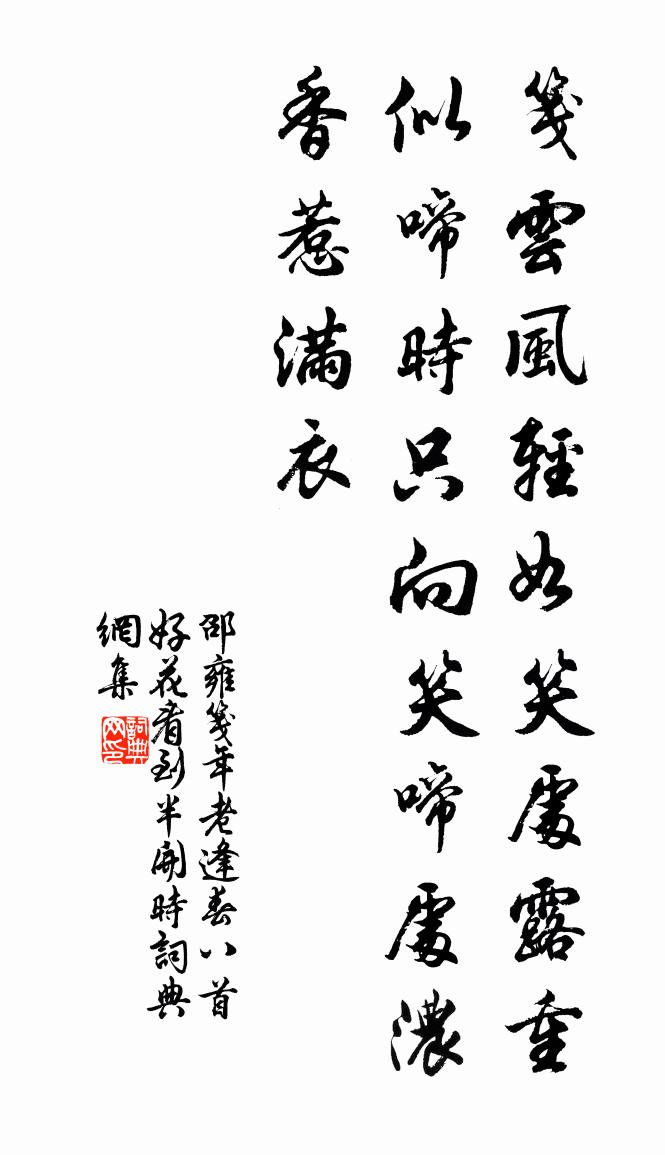 箋雲風輕如笑處露重
似啼時只向笑啼處濃
香惹滿衣
邵雍箋年老逢春八首
好花看到半開時詞典
網集
詞典
网印